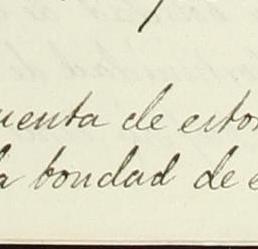 uenta de estos
la bondad de e